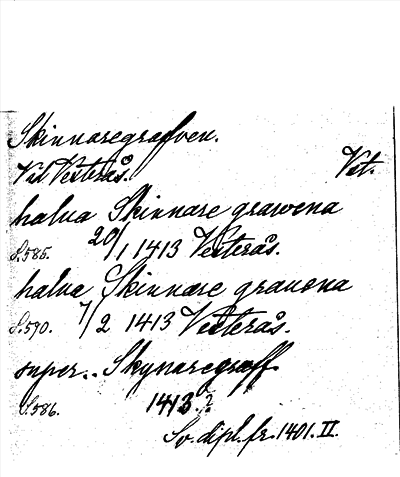 Skinnaregrafven.
Vid Vesterås. Vst.
halua Skinnare grawena
S.585. 20/1 1413 Vesterås.
halua Skinnare grauona
S.590. 7/2 1413 Vesterås.
super.. Skynaregraff
S.586. 1413.?
Sv. dipl. fr. 1401. II.